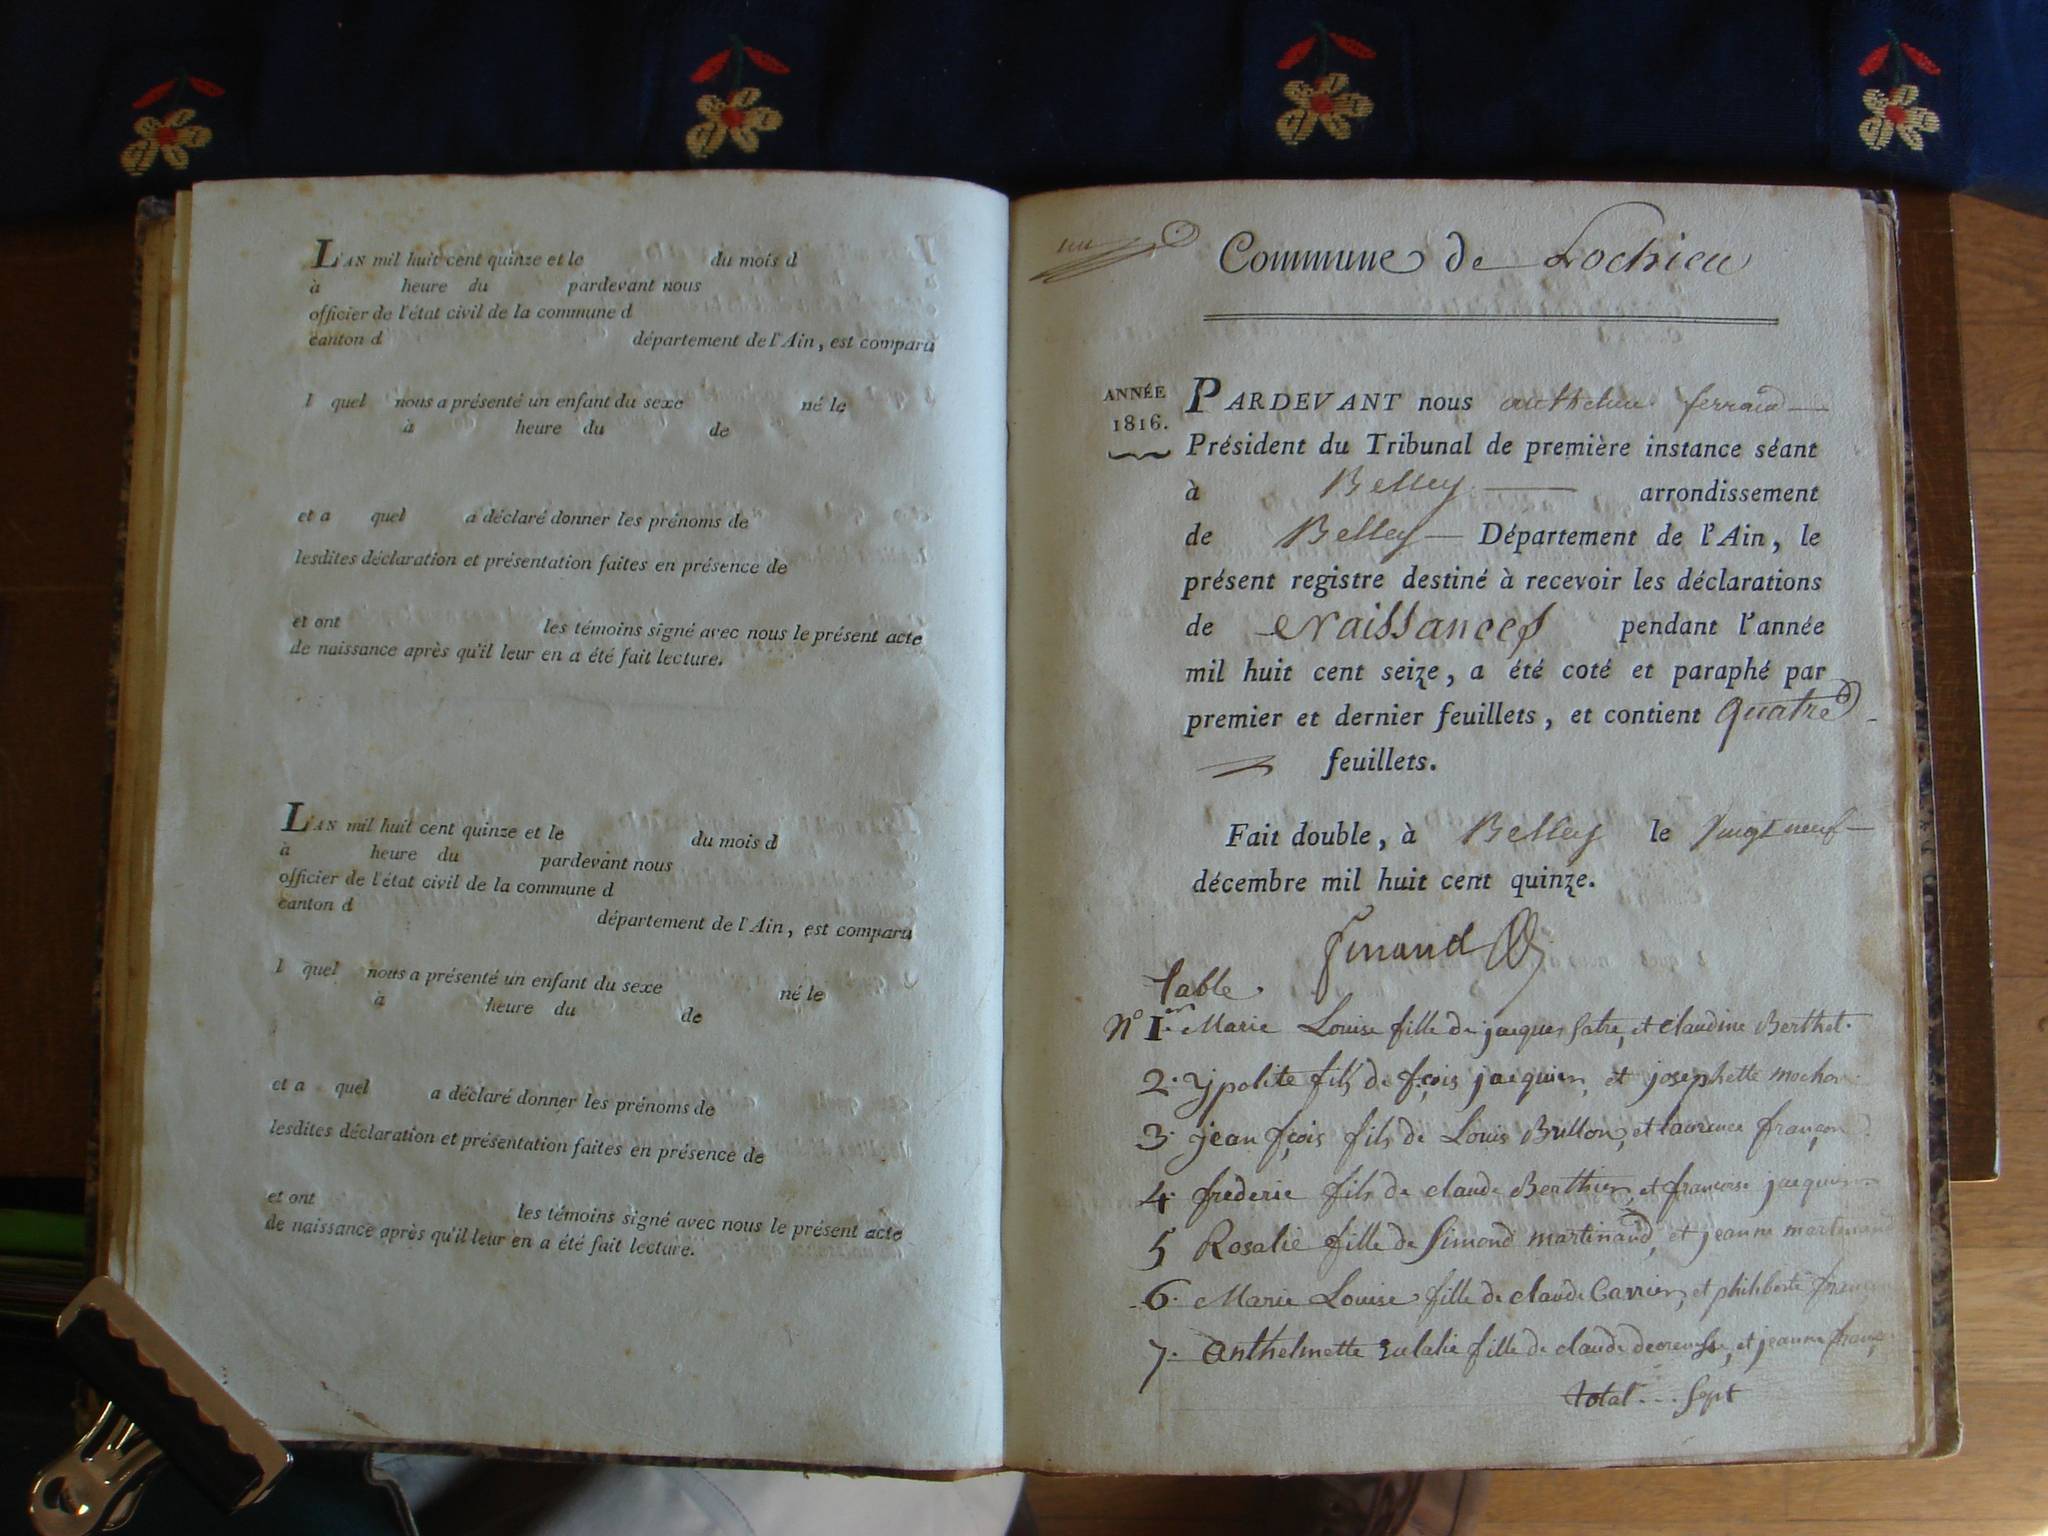 L'AN mil huit cent quinze et le du mois d
à heure du pardevant nous
officier de l'état civil de la commune d
canton d département de l'Ain, est comparu
l quel nous a présenté un enfant du sexe né le
à heure du de
et a quel a déclaré donner les prénoms de
lesdites déclaration et présentation faites en présence de
et ont les témoins signé avec nous le présent acte
de naissance après qu'il leur en a été fait lecture.
L'AN mil huit cent quinze et le du mois d
à heure du pardevant nous
officier de l'état civil de la commune d
canton d département de l'Ain, est comparu
l quel nous a présenté un enfant du sexe né le
à heure du de
et a quel a déclaré donner les prénoms de
lesdites déclaration et présentation faites en présence de
et ont les témoins signé avec nous le présent acte
de naissance après qu'il leur en a été fait lecture.
Commune de Lochieu
ANNÉE
1816.
PARDEVANT nous ferrand
Président du Tribunal de première instance séant
à Belley arrondissement
de Belley Département de l'Ain, le
présent registre destiné à recevoir les déclarations
de Naissances pendant l'année
mil huit cent seize, a été coté et paraphé par
premier et dernier feuillets, et contient quatre
feuillets.
Fait double, à Belley le vingt neuf
décembre mil huit cent quinze.
Table.
N° 1er Marie Louise fille de jacques Satre, et claudine Berthet.
2. ypolite fils de fçois jacquier, et josephette
3. jean fçois fils de Louis Brillon, et laurence françon
4. frederic fils de claude Berthier, et francoise jacquier
5 Rosalie fille de Simond martinand, et jeanne martinand
6. Marie Louise fille de claude Carrier, et philiberte
7. Anthelmette Eulalie fille de claude et jeanne
total... Sept